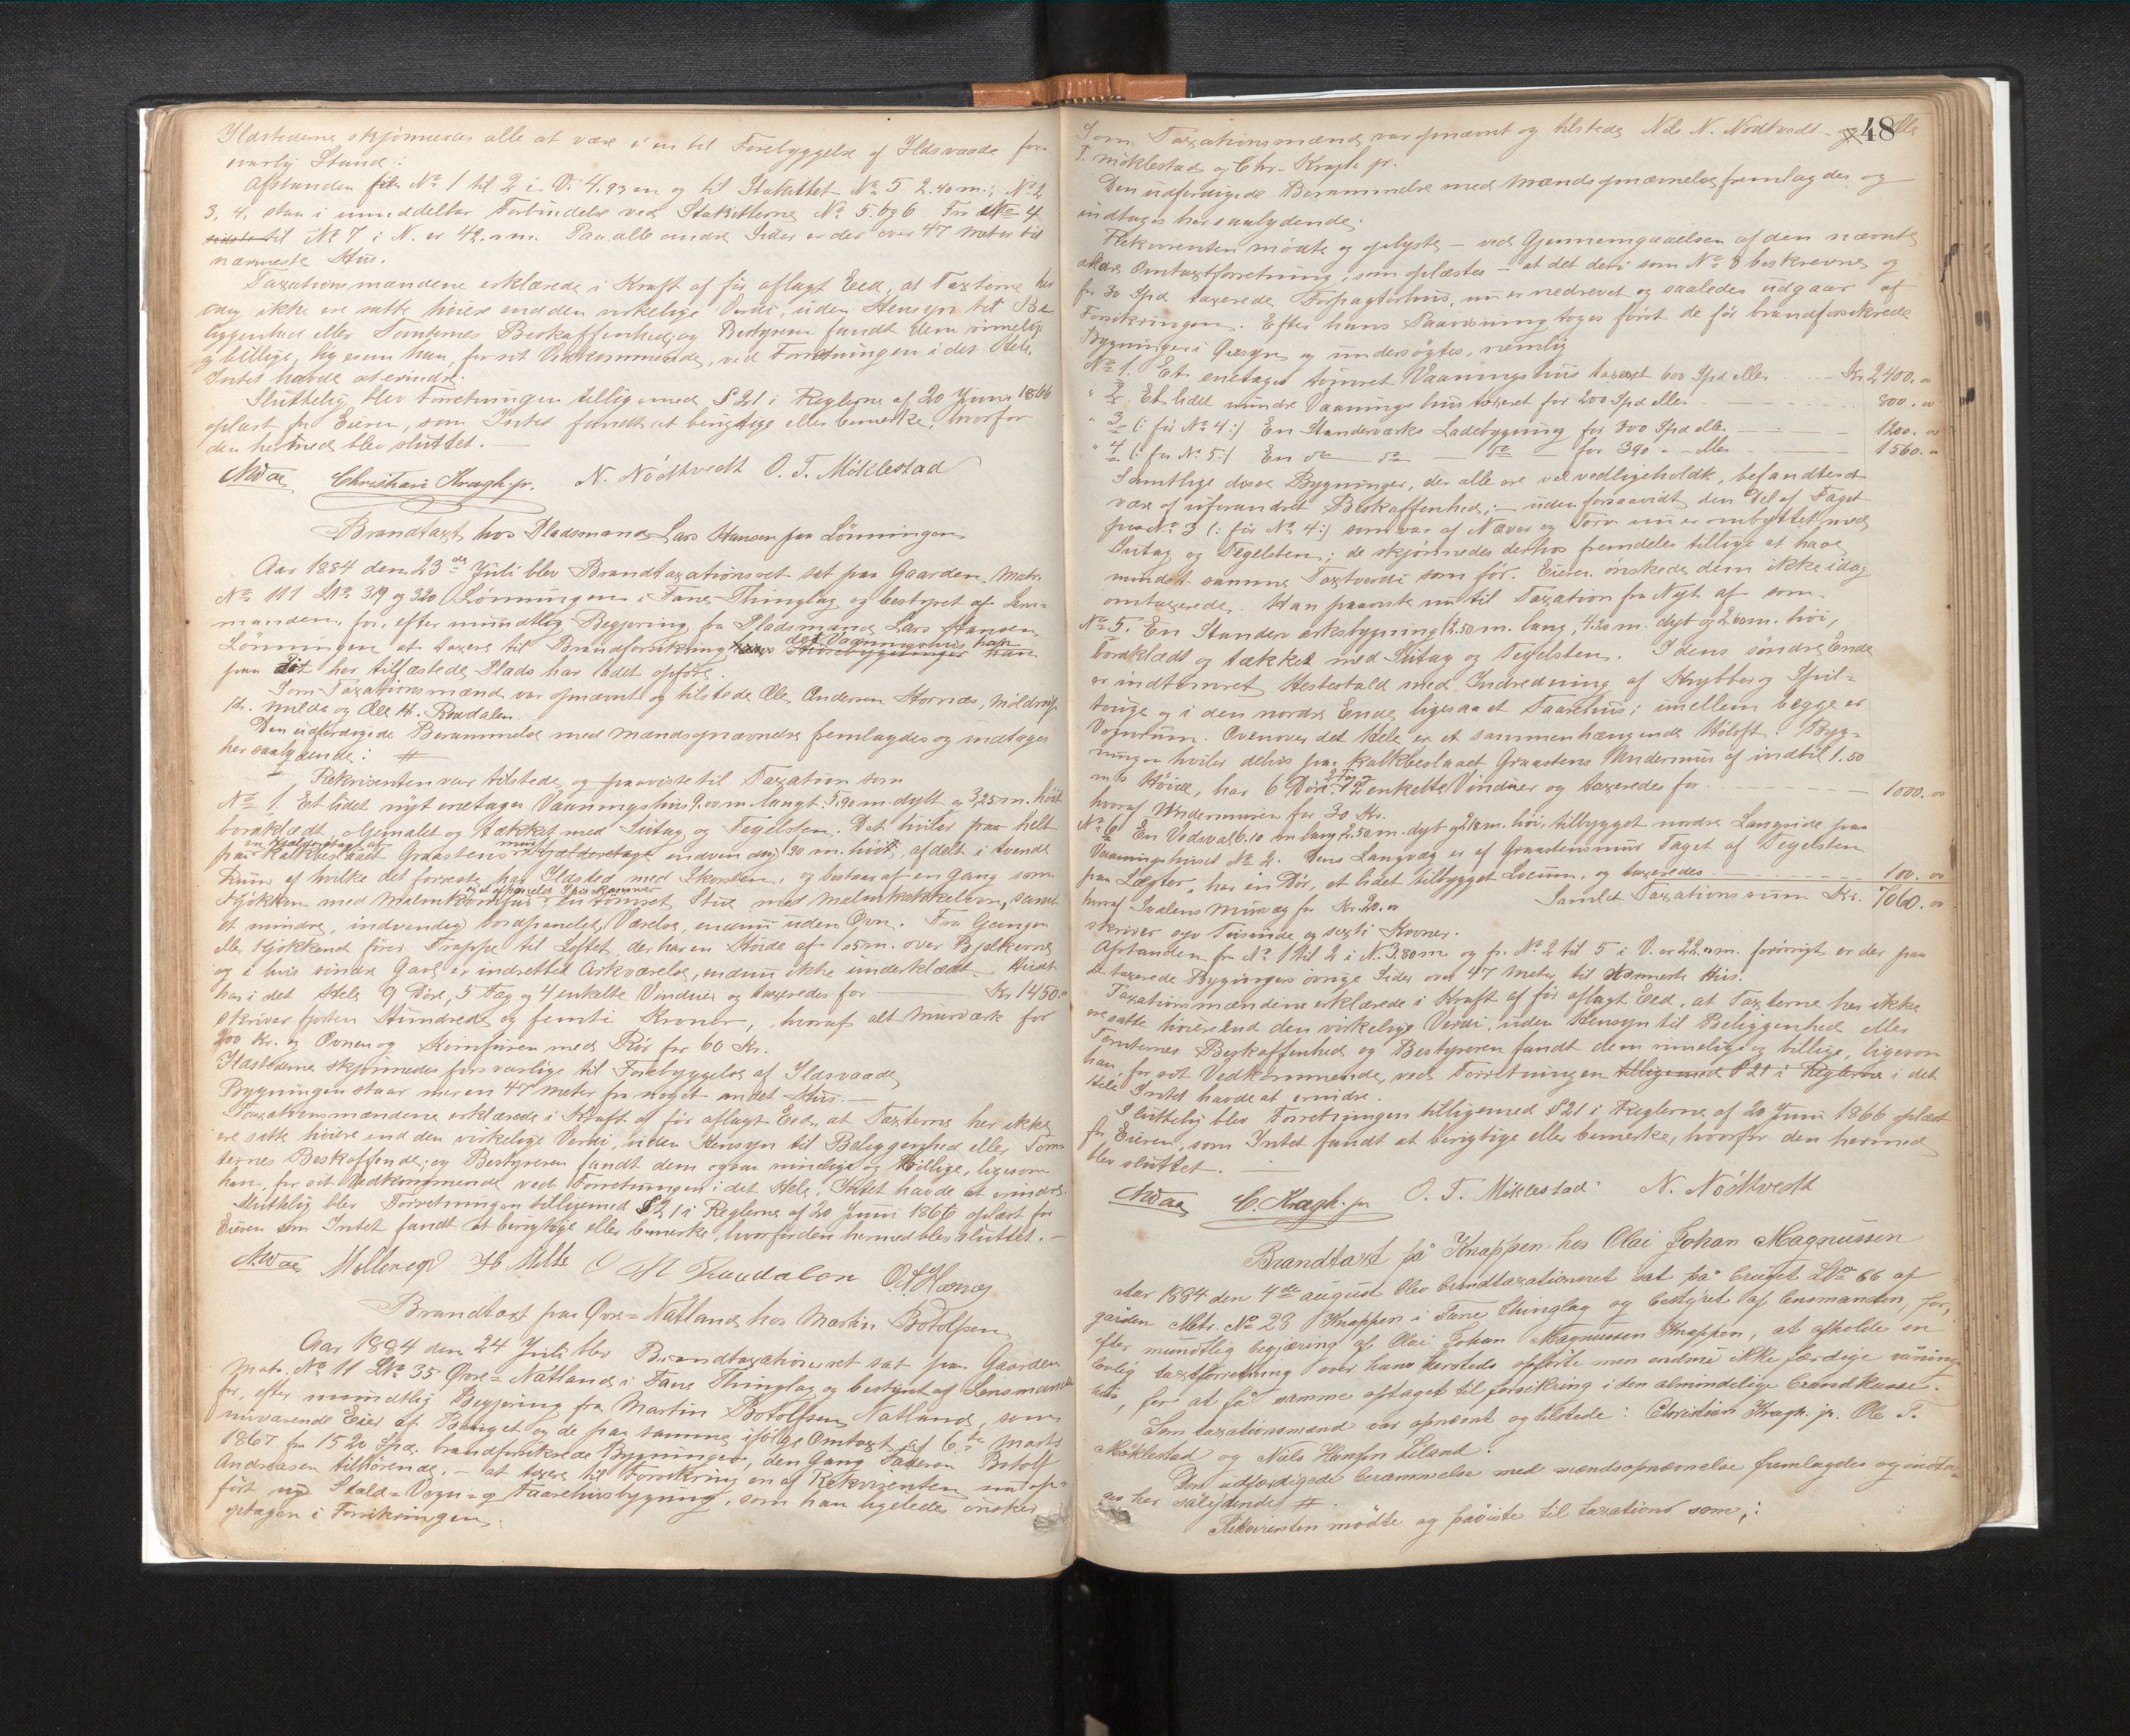 Ildstederne skjønnedes alle at være i en til Forebyggelse af Ildsvaade for-
svarlig Stand.
Afstanden fra No 1 til 2 i V. 4.93 m og til Stakittet No 5 2.40 m.; No 2
3, 4, staa i umiddelbar Forbindelse ved Stakitterne No 5. og 6. Fra No 4
til No 7 i N. er 42. m. Paa alle andre Sider er der over 47 Meter til
nærmeste Hus.
Taxationsmændene erklærede i Kraft af før aflagt Eed, at Taxterne her
ikke ere satte høiere end den virkelige Verdi, uden Hensyn til Be-
liggenhed eller Tomternes Beskaffenhed, og Bestyreren fandt dem rimelige
og billige, ligesom han, for sit Vedkommende, ved Forretningen i det Hele,
Intet havde at erindre.
Sluttelig blev Forretningen tilligemed § 21 i Reglerne af 20 Juni 1866
oplæst for Eieren, som Intet fandt at berigtige eller bemerke, hvorfor
den hermed blev sluttet. —
Christian Kragh jr. N. Nödtvedt O. T. Miklestad
Brandtaxt hos Pladsmand Lars Hansen paa Lønningen
Aar 1884 den 23de Juli blev Brandtaxationsret sat paa Gaarden Matr.
No 111 LNo 319 og 320 Lønningen i Fane Thinglag og bestyret af Lens-
manden, for, efter mundtlig Begjering fra Pladsmand Lars Hansen
Lønningen at taxere til Brandforsikring det Vaaningshus han
paa sit her tilfæstede Plads har ladet opføre.
Som Taxationsmænd var opnævnt og tilstede Ole Andersen Hornæs, Møldrup
H. Milde og Ole H. Raadalen.
Den udfærdigede Berammelse med Mandsopnævnelse fremlagdes og indtages
her saalydende: #
Rekvirenten var tilstede og paaviste til Taxation som
No 1. Et lidet nyt enetages Vaaningshus 9.00 m. langt, 5.90 m. dybt og 3.25 m. høit
bordklædt, Oljemalet og tækket med Sutag og Tegelsten. Det hviler paa helt
en Kjælderetage af mur
fra kalkbeslaaet Graastens endvendig 1.90 m. høit, afdelt i tvende
Rum af hvilke det forreste har Ildsted med Skorsten, og bestaar af en Gang som
og et afpanelet Spiskammer
Kjøkken med Malmkomfur en tømret Stue med Malmkakkelovn, samt
et mindre, indvendig bordpanelet Værelse, endnu uden Ovn. Fra Gangen
eller Kjøkkenet fører Trappe til Loftet, der har en Høide af 1.25 m. over Bjelkerne
og i hvis søndre Gavl er indrettet Arkværelse, endnu ikke underklædt. Huset
har i det Hele 9 Døre, 5 Fag og 4 enkelte Vinduer og taxeredes for — Kr 1450.
skriver fjorten Hundrede og femti Kroner, hvoraf alt Murværk for
200 Kr. og Ovnen og Komfuren med Rør for 60 Kr.
Ildstederne skjønnedes forsvarlige til Forebyggelse af Ildsvaade
Bygningen staar mer en 47 Meter fra noget andet Hus. —
Taxationsmændene erklærede i Kraft af før aflagt Eed, at Taxterne her ikke
ere satte høiere end den virkelige Verdi, uden Hensyn til Beliggenhed eller Tom-
ternes Beskaffende; og Bestyreren fandt dem ogsaa rimelige og billige, ligesom
han, for sit Vedkommende ved Forretningen i det Hele, Intet havde at erindre.
Sluttelig blev Forretningen tilligemed § 21 i Reglerne af 20 Juni 1866 oplæst for
Eieren som Intet fandt at berigtige eller bemerke, hvorfor den hermed blev sluttet. —
H Milde O H Raadalen
Brandtaxt paa Øvre-Natland hos Martin Botolfsen
Aar 1884 den 24 Juli blev Brandtaxationsret sat paa Gaarden
Matr. No 11 LNo 35 Øvre-Natland i Fane Thinglag og bestyret af Lensmanden
for, efter mundtlig Begjering fra Martin Botolfsen Natland, som
nuværende Eier af Bruget og de paa samme ifølge Omtaxt af 6te Marts
1867 for 1520 Spd. brandforsikrede Bygninger, den Gang Faderen Botolf
Andreasen tilhørende, — at taxere til Forsikring en af Rekvirenten nu op-
ført ny Stald-Vogn-og Faarehusbygning, som han ligeledes ønsker
optagen i Forsikringen.
48
Som Taxationsmænd var opnævnt og tilstede Nils N. Nødtvedt Ole
T. Miklestad og Chr. Kragh jr.
Den udfærdigede Berammelse med Mandsopnævnelse fremlagdes og
indtages her saalydende:
Rekvirenten mødte og oplyste — ved Gjennemgaaelsen af den nævnte
ældre Omtaxtforretning, som oplæstes — at det deri som No 3 beskrevne og
for 30 Spd. taxerede Forpagterhus, nu er nedrevet og saaledes udgaar af
Forsikringen. Efter hans Paavisning toges først de før brandforsikrede
Bygninger i Øiesyn og undersøgtes, nemlig
No 1. Et enetages tømret Vaaningshus taxeret 600 Spd eller — Kr 2400.00
" 2. Et lidet mindre Vaaningshus taxeret for 200 Spd eller — 800.00
" 3 (: før No 4:) En Standerværks Ladebygning for 300 Spd eller — 1200.00
" 4 (: før No 5:) En do do — do for 390 " — eller — 1560.00
Samtlige disse Bygninger, der alle ere vel vedligeholdt, befandtes at
være af uforandret Beskaffenhed; — uden forsaavidt den Del af Taget
paa No 3 (: før No 4:) som var af Næver og Torv nu er ombyttet med
Sutag og Tegelsten; de skjønnedes derhos fremdeles tillige at have
mindst samme Taxtverdi som før. Eieren ønskede dem ikke idag
omtaxerede. Han paaviste nu til Taxation fra Nyt af som
No 5. En Standerverksbygning 12.50 m. lang, 4.20 m. dyb og 2.60 m. høi,
bordklædt og tækket med Sutag og Tegelsten. I dens søndre Ende
er indtømret Hestestald med Indredning af Krybbe og Spil-
touge og i den nordre Ende ligesaa et Faarehus; imellem begge er
Vognrum. Ovenover det Hele er et sammenhængende Høloft. Byg-
ningen hviler delvis paa kalkbeslaaet Graastens Undermur af indtil 1.50
m's Høide, har 6 Døre, 2 Fag og 2 enkelte Vinduer og taxeredes for — 1000.00
hvoraf Undermuren for 30 Kr.
No 6 En Vedsval 6.10 m lang, 2.50 m. dyb og 2.18 m. høi, tilbygget nordre Langside paa
Vaaningshuset No 2. Dens Langvæg er af Graastensmur Taget af Tegelsten
paa Lægter, har en Dør, et lidet tilbygget Locum, og taxeredes — 100.00
hvoraf Svalens Murvæg for Kr. 20.00 Samlet Taxationssum Kr. 7060.00
skriver syv Tusinde og sexti Kroner.
Afstanden fra No 1 til 2 i N. 3.80 m og fra No 2 til 5 i V. er 22. m. forøvrigt er der paa
de taxerede Bygningers øvrige Sider over 47 Meter til nærmeste Hus.
Taxationsmændene erklærede i Kraft af før aflagt Eed, at Taxterne her ikke
ere satte høiere end den virkelige Verdi, uden Hensyn til Beliggenhed eller
Tomternes Beskaffenhed og Bestyreren fandt dem rimelige og billige, ligesom
han, for sit Vedkommende, ved Forretningen tilligemed § 21 i Reglerne i det
Hele Intet havde at erindre.
Sluttelig blev Forretningen tilligemed § 21 i Reglerne af 20 Juni 1866 oplæst
for Eieren, som Intet fandt at berigtige eller bemerke, hvorfor den hermed
blev sluttet. —
C. Kragh. jr O. T. Miklestad N. Nödtvedt
Brandtaxt på Knappen hos Olai Johan Magnussen
Aar 1884 den 4de august blev brandtaxationsret sat på bruget LNo 66 af
gården Matr. No 28 Knappen i Fane thinglag og bestyret af lensmanden, for,
efter mundtlig begjæring af Olai Johan Magnussen Knappen, at afholde en
lovlig taxtforretning over hans hersteds opførte men endnu ikke færdige vånings-
hus, for at få samme optaget til forsikring i den almindelige brandkasse.
Som taxationsmænd var opnævnt og tilstede: Christian Kragh. jr. Ole T.
Miklestad og Nils Hansen Liland.
Den udfærdigede berammelse med mandsopnævnelse fremlagdes og indta-
ges her sålydende #
Rekvirenten mødte og påviste til taxation som;: